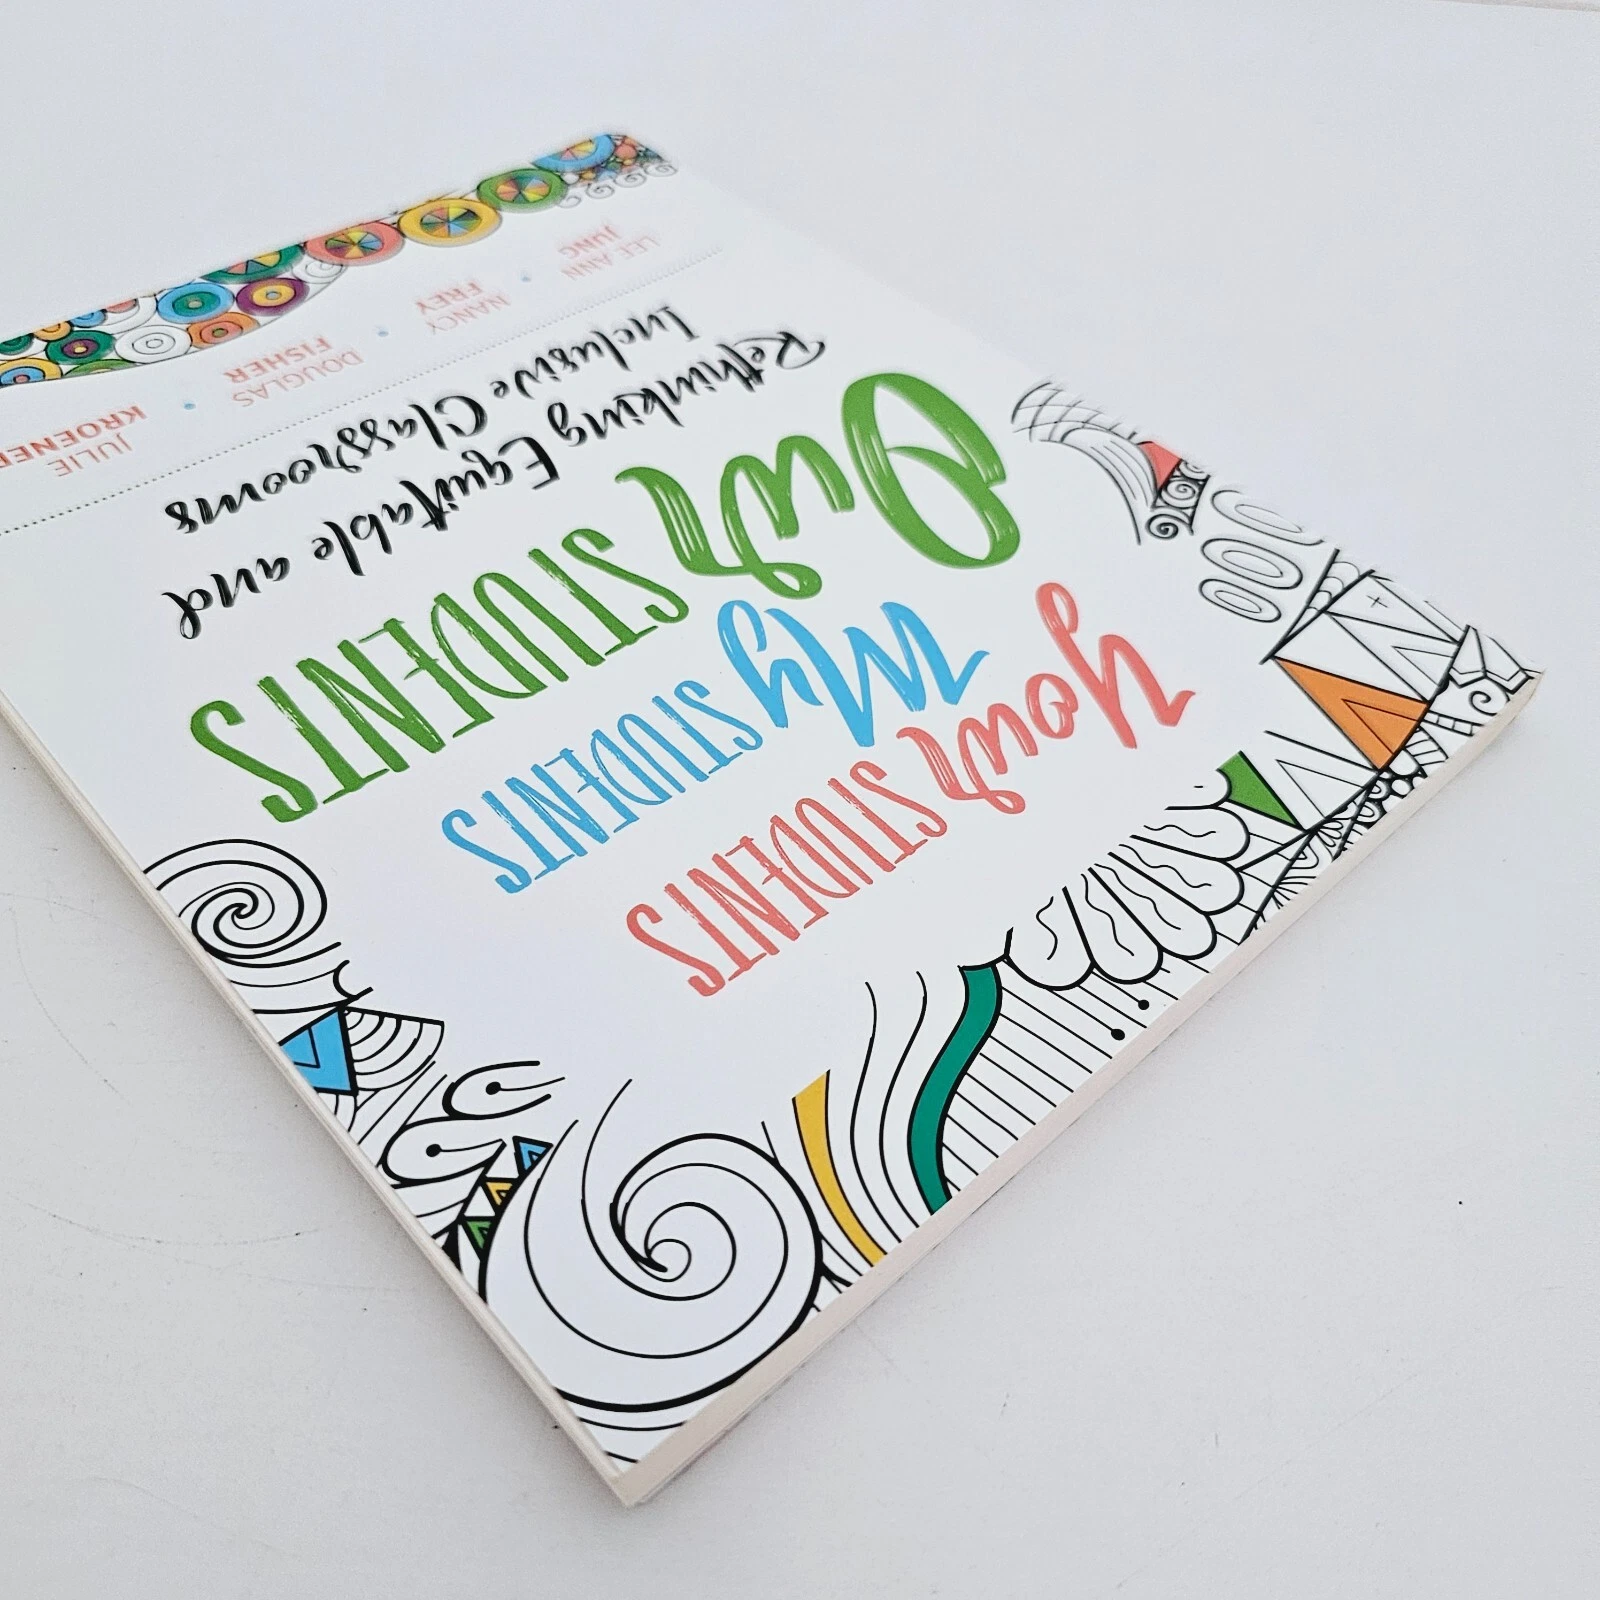 Your STUDENTS
My STUDENTS
Our STUDENTS
Rethinking Equitable and
Inclusive Classrooms
LEE ANN
JUNG
•
NANCY
FREY
•
DOUGLAS
FISHER
•
JULIE
KROENER